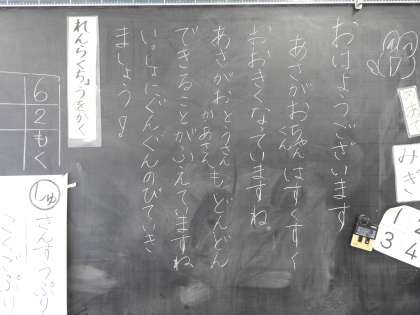 おはようございます
あさがおちゃんはすくすく
くん
おおきくなっていますね
あさがおとうさんもどんどん
かあさん
できることがふえていますね
いっしょにぐんぐんのびていき
ましょう!
れんらくちょうをかく
6
2
もく
しゅ
さんすう
みぎ
1 2
3 4